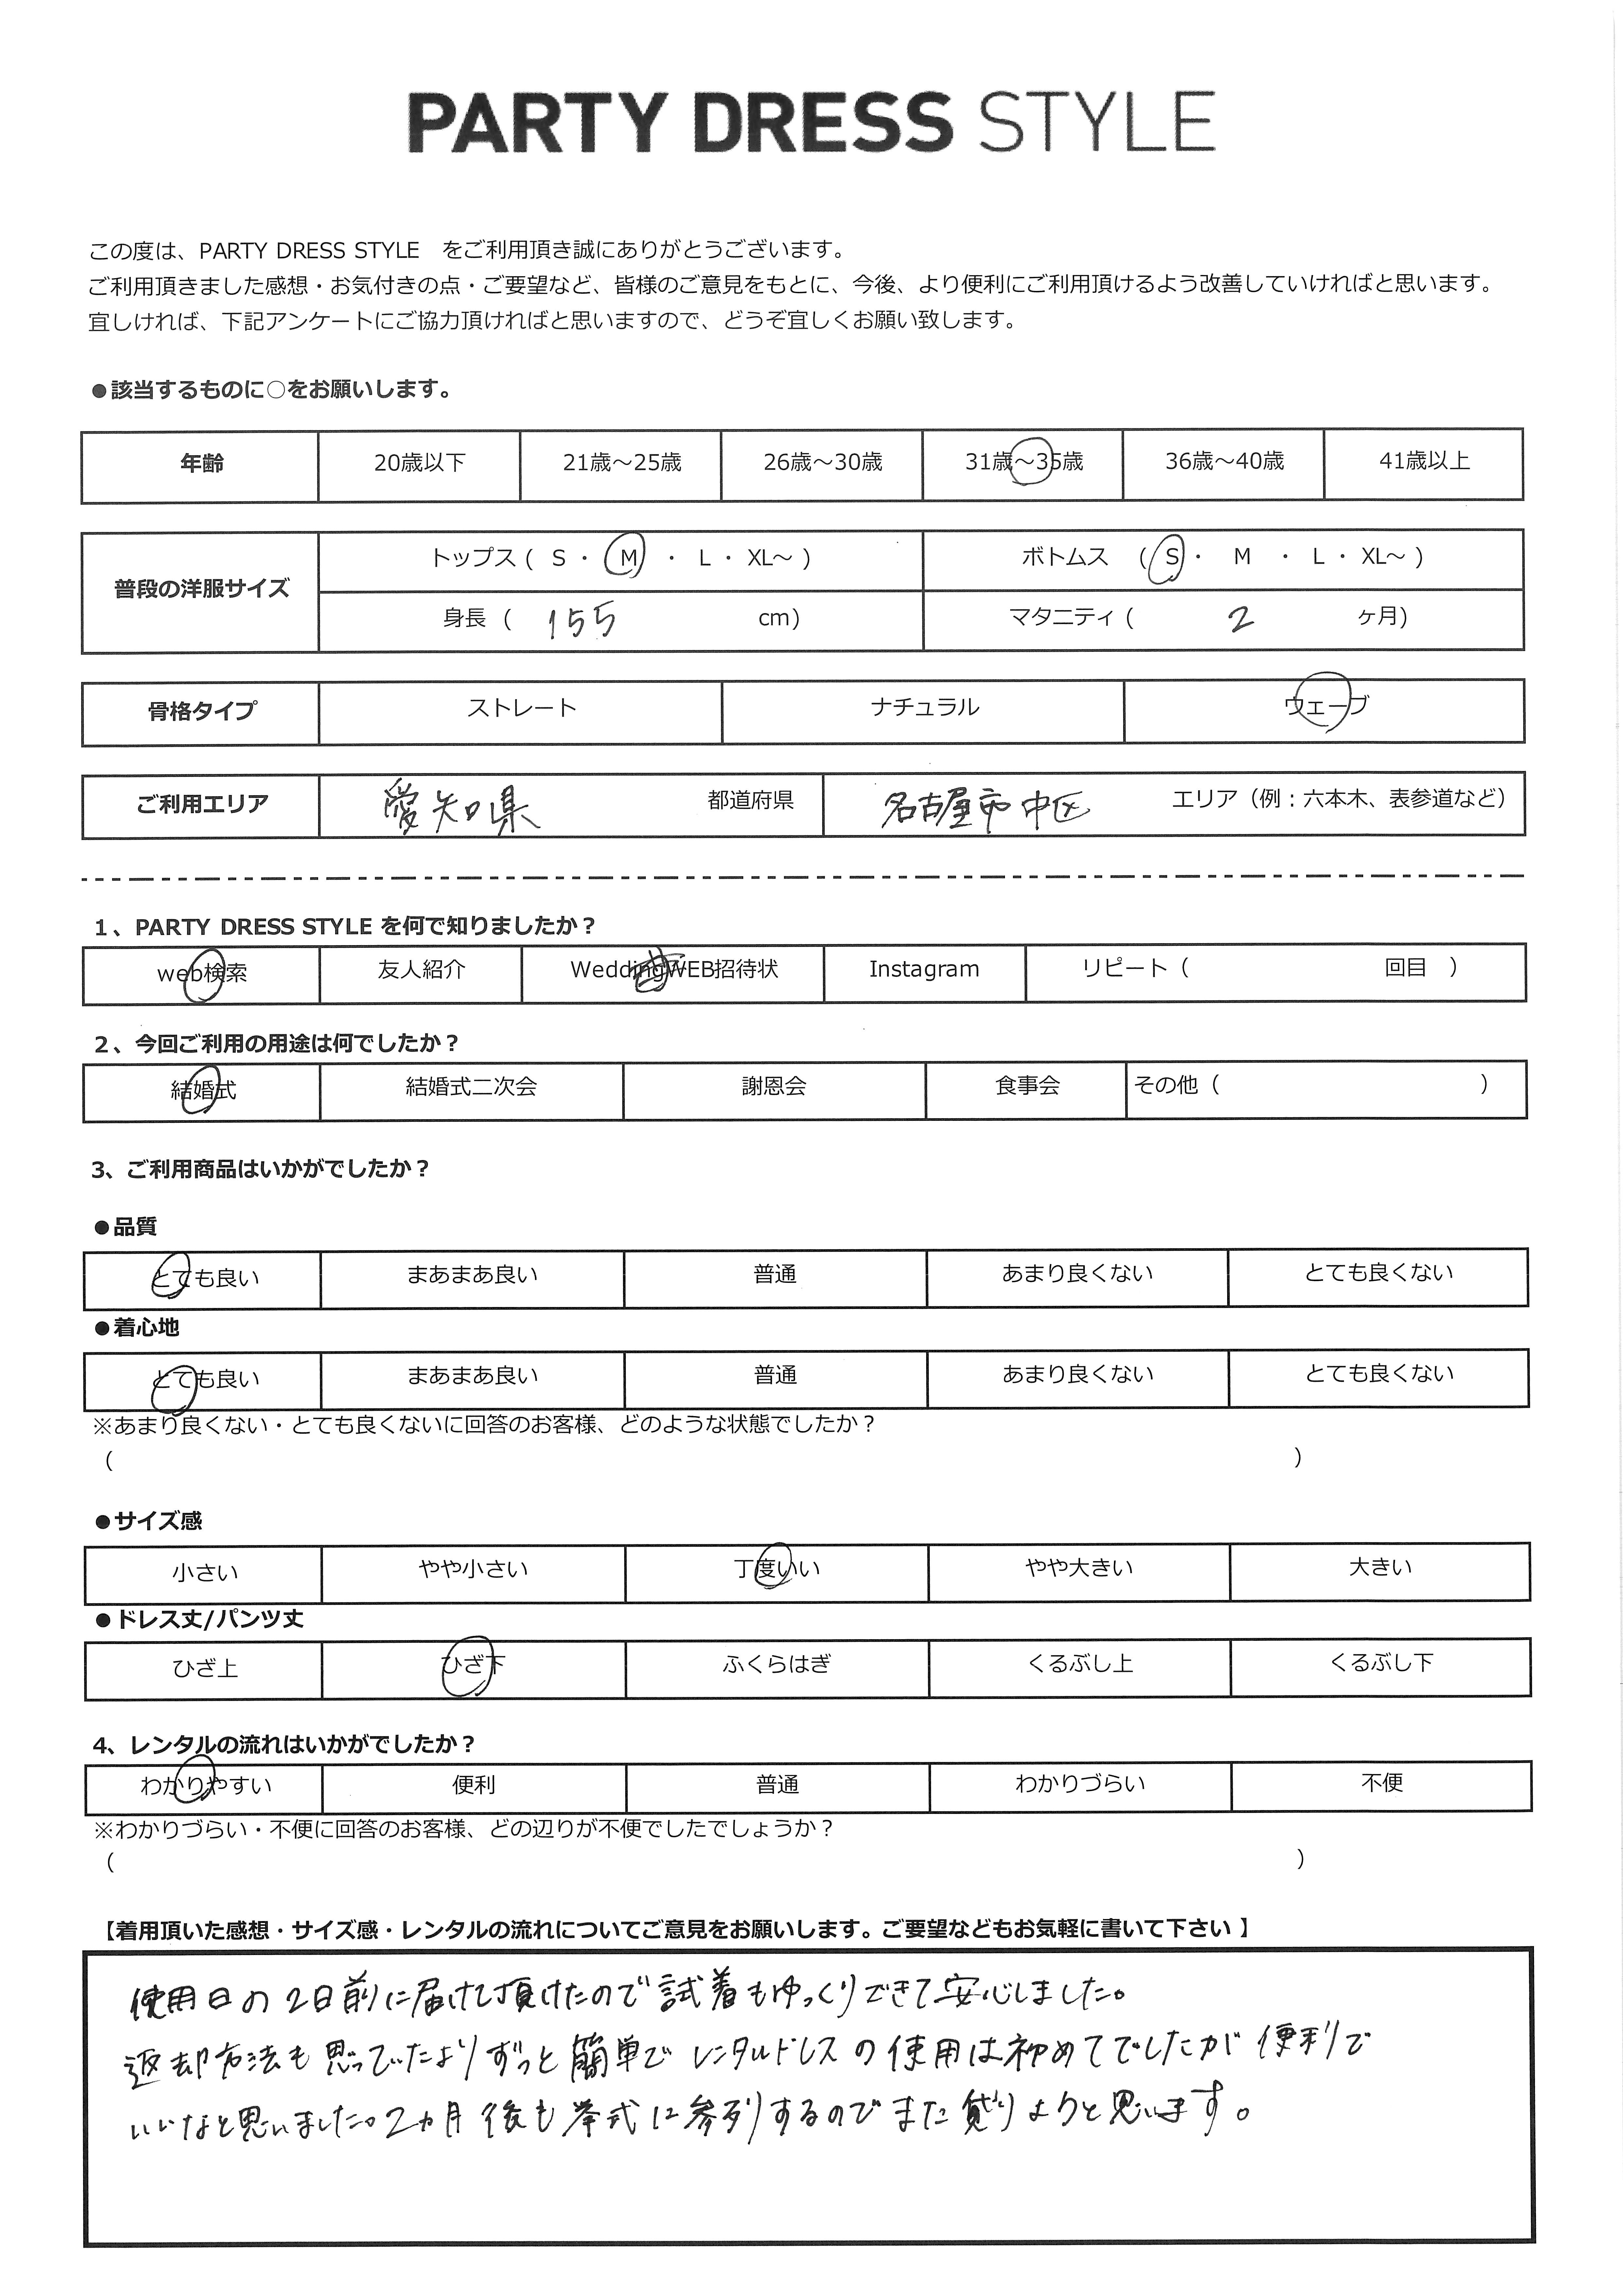 PARTY DRESS STYLE
この度は、PARTY DRESS STYLE をご利用頂き誠にありがとうございます。
ご利用頂きました感想・お気付きの点・ご要望など、皆様のご意見をもとに、今後、より便利にご利用頂けるよう改善していければと思います。
宜しければ、下記アンケートにご協力頂ければと思いますので、どうぞ宜しくお願い致します。
●該当するものに○をお願いします。
年齢 20歳以下 21歳～25歳 26歳～30歳 31歳～35歳 36歳～40歳 41歳以上
普段の洋服サイズ
トップス ( S ・ M ・ L ・ XL～ ) ボトムス ( S ・ M ・ L ・ XL～ )
身長 ( 155 cm) マタニティ ( 2 ヶ月)
骨格タイプ ストレート ナチュラル ウェーブ
ご利用エリア 愛知県 都道府県 名古屋市中区 エリア（例：六本木、表参道など）
1、PARTY DRESS STYLE を何で知りましたか？
web検索 友人紹介 WeddingWEB招待状 Instagram リピート（ 回目 ）
2、今回ご利用の用途は何でしたか？
結婚式 結婚式二次会 謝恩会 食事会 その他（ ）
3、ご利用商品はいかがでしたか？
●品質
とても良い まあまあ良い 普通 あまり良くない とても良くない
●着心地
とても良い まあまあ良い 普通 あまり良くない とても良くない
※あまり良くない・とても良くないに回答のお客様、どのような状態でしたか？
（ ）
●サイズ感
小さい やや小さい 丁度いい やや大きい 大きい
●ドレス丈/パンツ丈
ひざ上 ひざ下 ふくらはぎ くるぶし上 くるぶし下
4、レンタルの流れはいかがでしたか？
わかりやすい 便利 普通 わかりづらい 不便
※わかりづらい・不便に回答のお客様、どの辺りが不便でしたでしょうか？
（ ）
【着用頂いた感想・サイズ感・レンタルの流れについてご意見をお願いします。ご要望などもお気軽に書いて下さい 】
使用日の2日前に届けて頂けたので試着もゆっくりできて安心しました。
返却方法も思っていたよりずっと簡単でレンタルドレスの使用は初めてでしたが便利で
いいなと思いました。2カ月後も挙式に参列するのでまた借りようと思います。